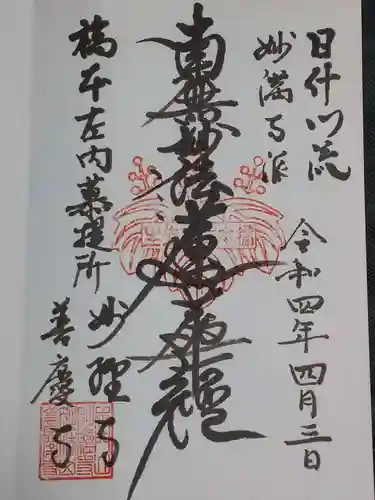 日什門流
妙満寺派
令和四年四月三日
南無妙法蓮華経
橋本左内菩提所
妙經寺
善慶寺